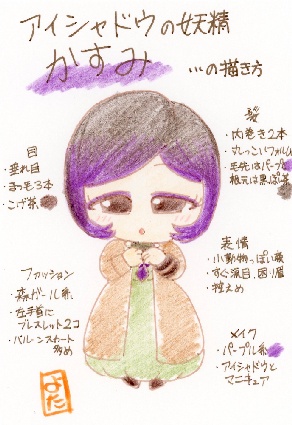 アイシャドウの妖精
かすみ …の描き方
髪
・内巻き2本
・丸っこいフォルム
・毛先はパープル
根元は黒っぽ茶
目
・垂れ目
・まつ毛3本
・こげ茶
表情
・小動物っぽい感
・すぐ涙目、困り眉
・控えめ
ファッション
・森ガール系
・左手首に
ブレスレット2コ
・バルーンスカート
多め
メイク
・パープル系
・アイシャドウと
マニキュア
よた